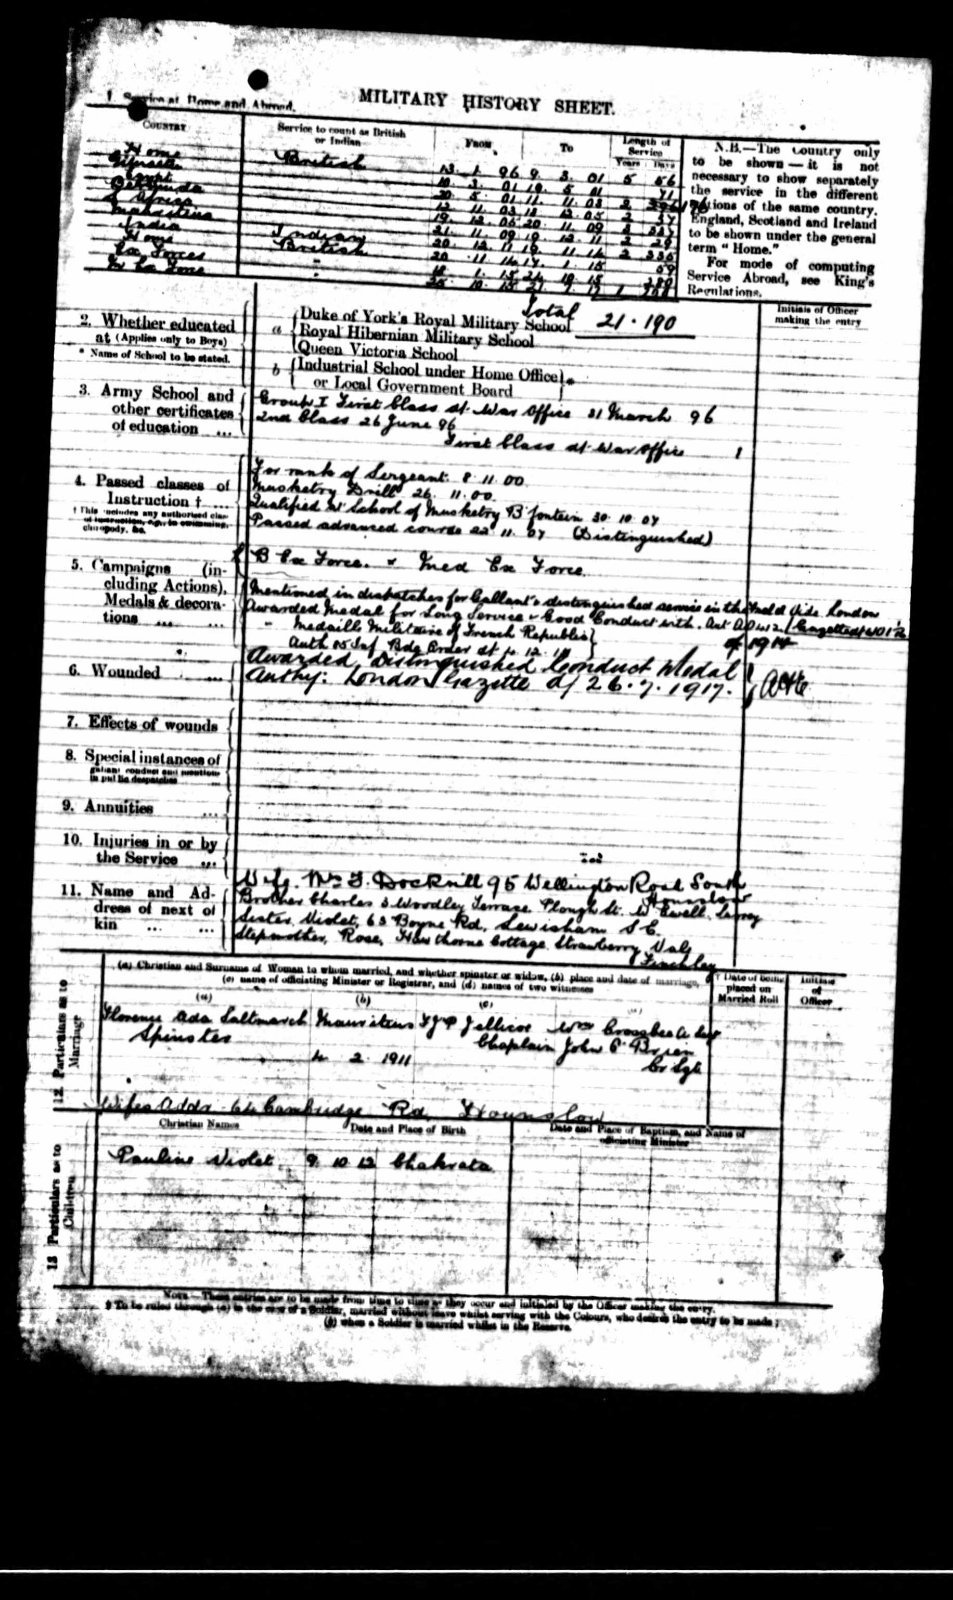 MILITARY HISTORY SHEET.
1. Service at Home and Abroad.
COUNTRY
Service to count as British
or Indian
FROM
To
Length of
Service
Years Days
Home British 13. 1. 96 9. 3. 01 5 56
Gibraltar 10. 3. 01 19. 5. 01 71
Egypt 20. 5. 01 11. 11. 03 2
Bermuda 12. 11. 03 18. 12. 05 2 37
S Africa 19. 12. 05 20. 11. 09 3 337
Mauritius 21. 11. 09 19. 12. 11 2 29
India Indian 20. 12. 11 19. 11. 14 2 335
Home British 20. 11. 14 17. 1. 15 59
Ex Forces 18. 1. 15 24. 10. 15 280
M Ex Force 25. 10. 15
Total 21 · 190
N.B.—The Country only
to be shown — it is not
necessary to show separately
the service in the different
stations of the same country.
England, Scotland and Ireland
to be shown under the general
term "Home."
For mode of computing
Service Abroad, see King's
Regulations.
Initials of Officer
making the entry
2. Whether educated
at (Applies only to Boys)
* Name of School to be stated.
a Duke of York's Royal Military School
Royal Hibernian Military School
Queen Victoria School
b Industrial School under Home Office *
or Local Government Board
3. Army School and
other certificates
of education ...
Group I First Class at War Office 31 March 96
2nd Class 26 June 96
First Class at War Office
4. Passed classes of
Instruction † ...
For rank of Sergeant 8. 11. 00
Musketry Drill 26. 11. 00
Qualified at School of Musketry B'fontein 30. 10. 07
Passed advanced course 22. 11. 07 (Distinguished)
5. Campaigns (in-
cluding Actions),
Medals & decora-
tions ... ...
B Ex Force. & Med Ex Force.
Mentioned in despatches for Gallant & distinguished service in the Field Vide London
Awarded Medal for Long Service & Good Conduct with
" Medaille Militaire of French Republic
of 1914
Awarded Distinguished Conduct Medal
Authy: London Gazette of 26. 7. 1917.
6. Wounded ...
7. Effects of wounds
8. Special instances of
gallant conduct and mention
in public despatches
9. Annuities ...
10. Injuries in or by
the Service ...
11. Name and Ad-
dress of next of
kin ... ...
Wife. Mrs F. Docknill 95 Wellington Road South
Hounslow
Brother Charles 3 Woodley Terrace Plough St. W Ewell Surrey
Sister Violet, 63 Boyne Rd, Lewisham S.E.
Stepmother, Rose, Hawthorne Cottage Strawberry Vale
Finchley
12 Particulars as to
Marriage
(a) Christian and Surname of Woman to whom married, and whether spinster or widow, (b) place and date of marriage,
(c) name of officiating Minister or Registrar, and (d) names of two witnesses
† Date of being
placed on
Married Roll
Initials
of
Officer
(a) (b) (c)
Florence Ada Saltmarsh Mauritius
Spinster Chaplain John P. Brien
4 2 1911 Cr Sgt
Wifes Addr 64 Cambridge Rd Hounslow
13 Particulars as to
Children
Christian Names
Date and Place of Birth
Date and Place of Baptism, and Name of
officiating Minister
Pauline Violet 9 10 12 Chakrata
NOTE—These entries are to be made from time to time as they occur and initialed by the Officer making the entry.
† To be ruled through (a) in the case of a Soldier, married without leave whilst serving with the Colours, who desires the entry to be made;
(b) when a Soldier is married whilst in the Reserve.